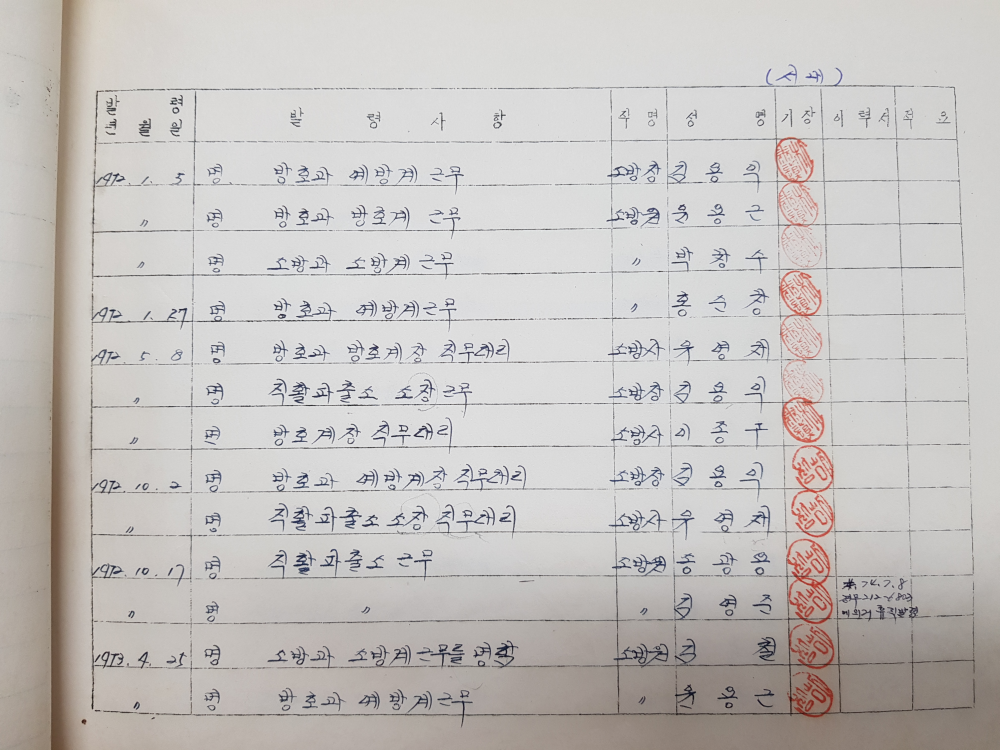 (서매)
발 령 발 령 사 항 직 명 성 명 기장 이력서 비 고
년 월 일
1972. 1. 5 명 방호과 예방계 근무 소방장 김 용 익
〃 명 방호과 방호계 근무 소방원 윤 용 근
〃 명 소방과 소방계 근무 〃 박 창 수
1972. 1. 27 명 방호과 예방계 근무 〃 홍 순 창
1972. 5. 8 명 방호과 방호계장 직무대리 소방사 우 영 제
〃 명 직활파출소 소장 근무 소방장 김 용 익
〃 명 방호계장 직무대리 소방사 이 종 구
1972. 10. 2 명 방호과 예방계장 직무대리 소방장 김 용 익
〃 명 직활파출소 소장 직무대리 소방사 우 영 제
1972. 10. 17 명 직활파출소 근무 소방원 송 광 용
〃 명 〃 〃 김 영 준
74. 7. 8
1973. 4. 25 명 소방과 소방계 근무를 명함 소방원 김 철
〃 명 방호과 예방계 근무 〃 윤 용 근